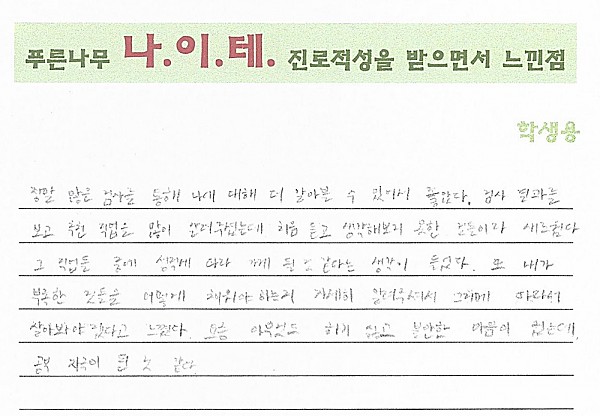 푸른나무 나.이.테. 진로적성을 받으면서 느낀점
학생용
정말 많은 검사를 통해 나에 대해 더 알아볼 수 있어서 좋았다. 검사 결과를
보고 추천 직업을 많이 알려주셨는데 처음 듣고 생각해보지 못한 것들이라 새로웠다
그 직업들 중에 성적에 따라 될 것 같다는 생각이 들었다. 또 내가
부족한 것들을 어떻게 채워야 하는지 자세히 알려주셔서 그에 따라서
살아봐야 겠다고 느꼈다. 요즘 아무것도 하기 싫고 불안한 마음이 컸는데,
공부 자극이 된 것 같다.